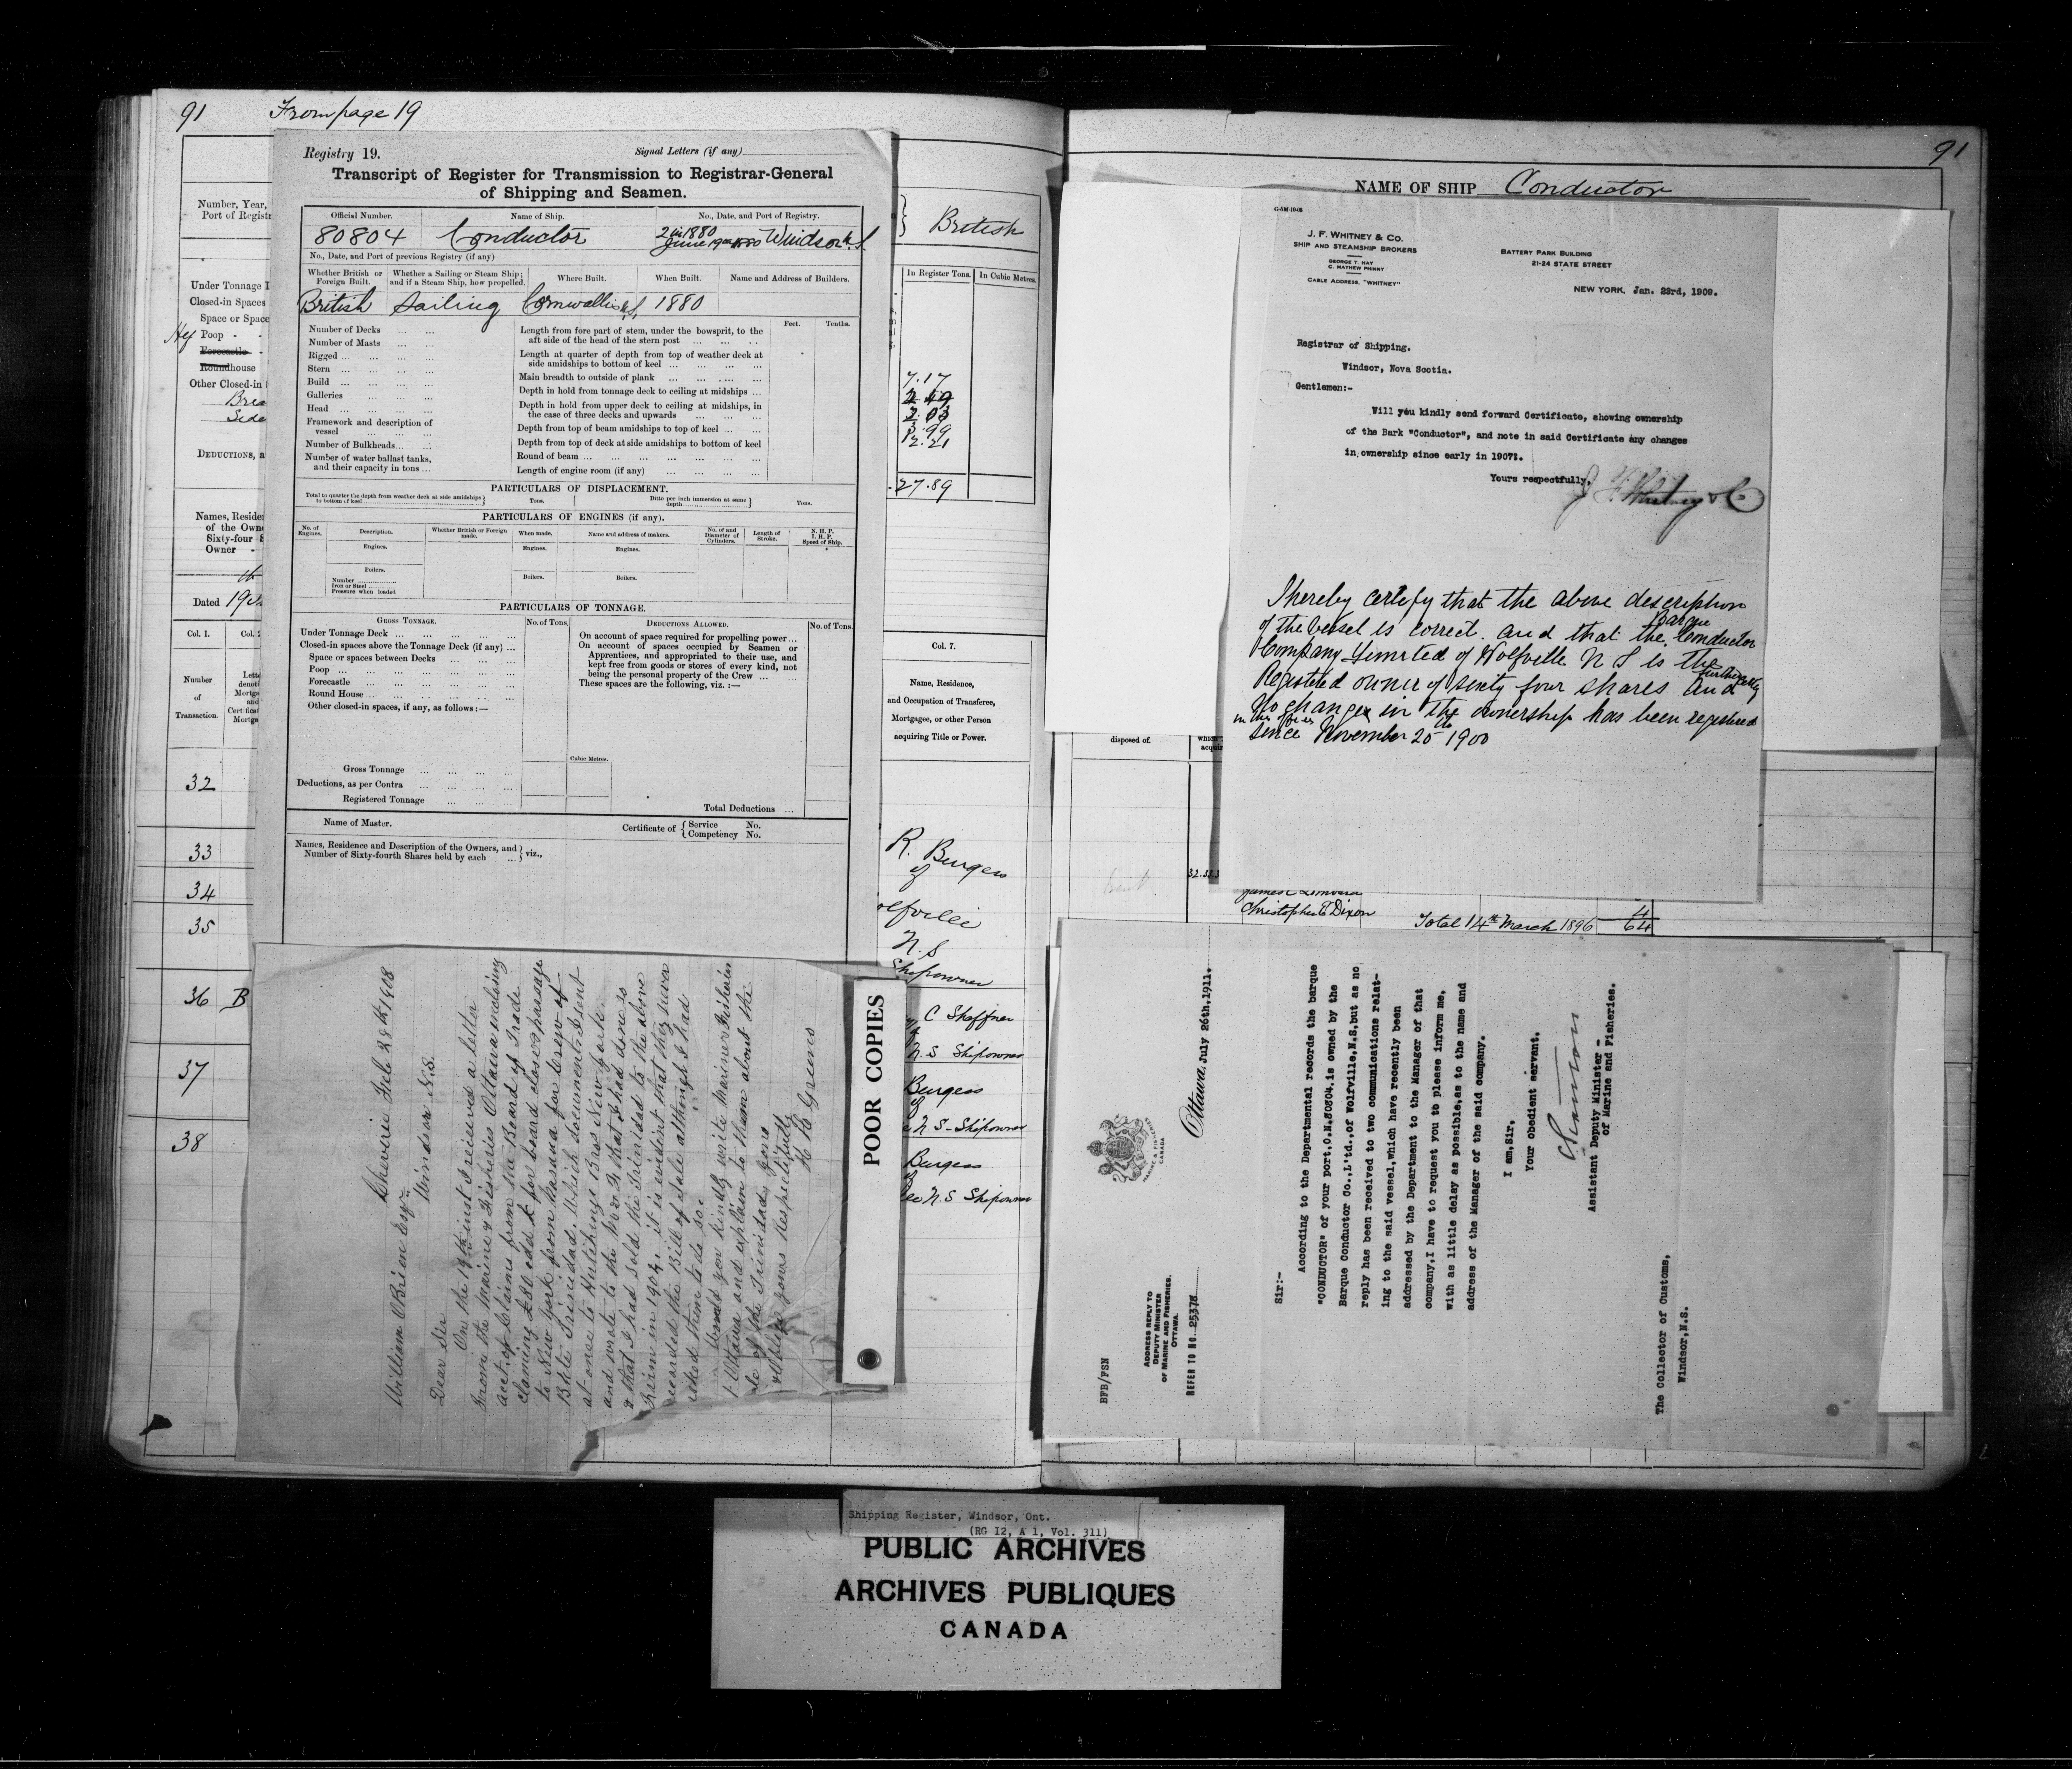 91 From page 19
Registry 19.
Signal Letters (if any)
Transcript of Register for Transmission to Registrar-General
of Shipping and Seamen.
Official Number. Name of Ship. No., Date, and Port of Registry.
80804 Conductor 2 in 1880
June 19th 1880 Windsor N.S.
No., Date, and Port of previous Registry (if any)
Whether British or Foreign Built. Whether a Sailing or Steam Ship; and if a Steam Ship, how propelled. Where Built. When Built. Name and Address of Builders.
British Sailing Cornwallis N.S. 1880
Feet. Tenths.
Number of Decks
Number of Masts
Rigged
Stern
Build
Galleries
Head
Framework and description of
vessel
Number of Bulkheads
Number of water ballast tanks,
and their capacity in tons
Length from fore part of stem, under the bowsprit, to the
aft side of the head of the stern post
Length at quarter of depth from top of weather deck at
side amidships to bottom of keel
Main breadth to outside of plank
Depth in hold from tonnage deck to ceiling at midships
Depth in hold from upper deck to ceiling at midships, in
the case of three decks and upwards
Depth from top of beam amidships to top of keel
Depth from top of deck at side amidships to bottom of keel
Round of beam
Length of engine room (if any)
PARTICULARS OF DISPLACEMENT.
Total to quarter the depth from weather deck at side amidships to bottom of keel Tons. Ditto per inch immersion at same depth Tons.
PARTICULARS OF ENGINES (if any).
No. of Engines. Description. Whether British or Foreign made. When made. Name and address of makers. No. of and Diameter of Cylinders. Length of Stroke. N. H. P. I. H. P. Speed of Ship.
Engines. Engines. Engines.
Boilers.
Number
Iron or Steel
Pressure when loaded
Boilers. Boilers.
PARTICULARS OF TONNAGE.
GROSS TONNAGE. No. of Tons. DEDUCTIONS ALLOWED. No. of Tons.
Under Tonnage Deck
Closed-in spaces above the Tonnage Deck (if any)
Space or spaces between Decks
Poop
Forecastle
Round House
Other closed-in spaces, if any, as follows:—
On account of space required for propelling power
On account of spaces occupied by Seamen or
Apprentices, and appropriated to their use, and
kept free from goods or stores of every kind, not
being the personal property of the Crew
These spaces are the following, viz.:—
Cubic Metres.
Gross Tonnage
Deductions, as per Contra
Registered Tonnage
Total Deductions
Name of Master. Certificate of { Service No.
Competency No.
Names, Residence and Description of the Owners, and
Number of Sixty-fourth Shares held by each } viz.,
Number, Year,
Port of Registr
Under Tonnage D
Closed-in Spaces
Space or Space
Poop
Forecastle
Roundhouse
Other Closed-in
Brea
Side
DEDUCTIONS, a
Names, Reside
of the Owne
Sixty-four S
Owner
Dated 19th
Col. 1. Col. 2
Number
of
Transaction.
32
33
34
35
36 B
37
38
British
In Register Tons. In Cubic Metres.
7.17
2.03
2.21
27.89
Col. 7.
Name, Residence,
and Occupation of Transferee,
Mortgagee, or other Person
acquiring Title or Power.
R. Burgess
of
olfville
N.S
Shipowner
C Shaffner
N.S Shipowner
Burgess
of
N.S- Shipowner
Burgess
N.S Shipowner
Cheverie Feb 28th 1908
William OBrien Esqr
Windsor N.S.
Dear Sir
On the 19th inst I received a letter
from the Marine & Fisheries Ottawa inclosing
acct. of Claims from the Board of Trade
claiming £80 odd for board close & passage
to New York from Havana for crew of
Bkte Trinidad. Which document I sent
at once to Hutchings Bros New York.
and wrote to the M & F that I had done so
& that I had sold the Trinidad to the above
Firm in 1904, it is evident that they never
recorded the Bill of Sale although I had
asked them to do so.
Would you kindly write Marine Fisheries
Ottawa and explain to them about the
sale of the Trinidad, and
oblige yours Respectfully
POOR COPIES
91
NAME OF SHIP Conductor
G-5M-10-08
J. F. WHITNEY & CO.
SHIP AND STEAMSHIP BROKERS
GEORGE T. HAY
C. MATHEW PHINNY
CABLE ADDRESS, "WHITNEY"
BATTERY PARK BUILDING
21-24 STATE STREET
NEW YORK, Jan. 23rd, 1909.
Registrar of Shipping.
Windsor, Nova Scotia.
Gentlemen:-
Will you kindly send forward Certificate, showing ownership
of the Bark "Conductor", and note in said Certificate any changes
in ownership since early in 1907.
Yours respectfully,
J. F. Whitney & Co
I hereby certify that the above description
of the vessel is correct. and that the Barque Conductor
Company Limited of Wolfville N S is the
Registered owner of sixty four shares and further that
No change in the ownership has been registered
in this office since November 20th 1900
disposed of.
James C Lombard
Christopher T Dixon 4
Total 14th March 1896 64
BFB/FSN
ADDRESS REPLY TO
DEPUTY MINISTER
OF MARINE AND FISHERIES.
OTTAWA.
REFER TO NO. 25378
MARINE & FISHERIES
CANADA
Ottawa, July 26th, 1911.
Sir:-
According to the Departmental records the barque
"CONDUCTOR" of your port, O.N.80804, is owned by the
Barque Conductor Co., L'td., of Wolfville, N.S, but as no
reply has been received to two communications relat-
ing to the said vessel, which have recently been
addressed by the Department to the Manager of that
company, I have to request you to please inform me,
with as little delay as possible, as to the name and
address of the Manager of the said company.
I am, Sir,
Your obedient servant,
Assistant Deputy Minister -
of Marine and Fisheries.
The Collector of Customs,
Windsor, N.S.
Shipping Register, Windsor, Ont.
(RG 12, A 1, Vol. 311)
PUBLIC ARCHIVES
ARCHIVES PUBLIQUES
CANADA